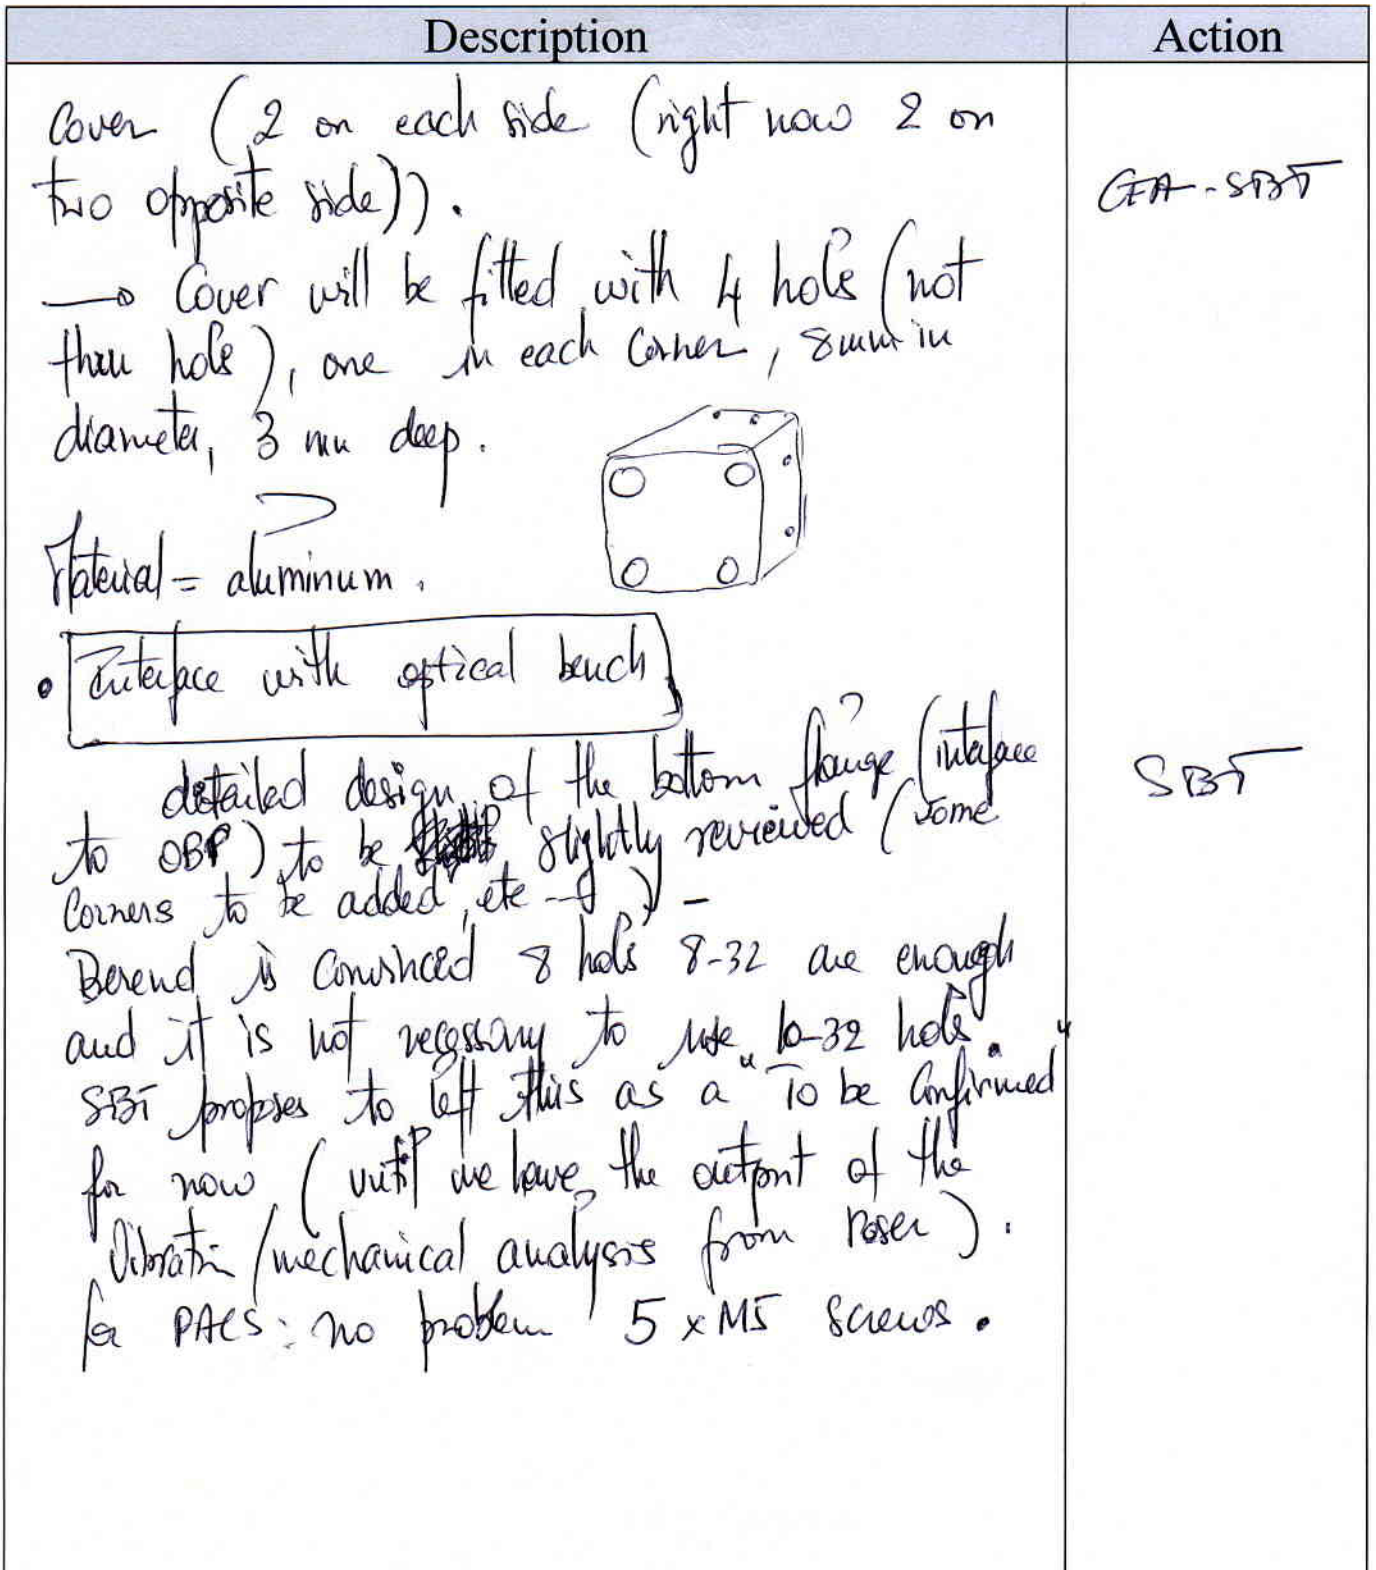 Description Action
Cover (2 on each side (right now 2 on
two opposite side)).
CEA-SBT
→ Cover will be fitted with 4 holes (not
thru holes), one in each corner, 8 mm in
diameter, 3 mm deep.
Material = aluminum.
• Interface with optical bench
detailed design of the bottom flange (interface
SBT
to OBP) to be slightly reviewed (some
corners to be added, etc --)) -
Berend is convinced 8 holes 8-32 are enough
and it is not necessary to use 10-32 holes.
SBT proposes to left this as a "To be confirmed"
for now (until we have the output of the
vibration/mechanical analysis from
for PACS: no problem 5 x M5 screws.